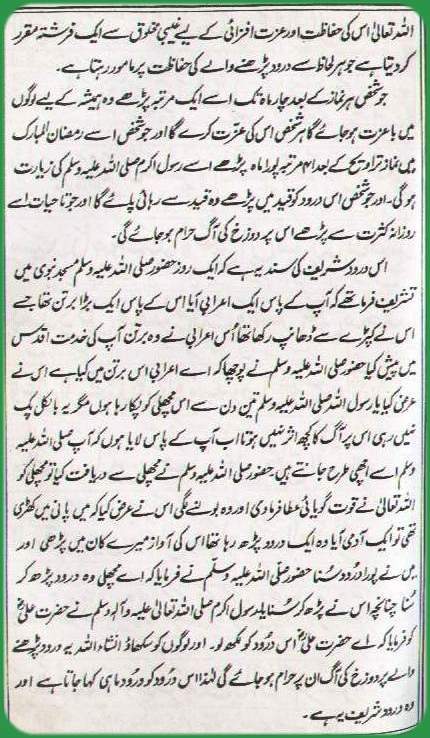 اللہ تعالیٰ اس کی حفاظت اور عزت افزائی کے لیے غیبی مخلوق سے ایک فرشتہ مقرر
کر دیتا ہے جو ہر لحاظ سے درود پڑھنے والے کی حفاظت پر مامور رہتا ہے۔
جو شخص ہر نماز کے بعد چار ماہ تک اسے ایک مرتبہ پڑھے وہ ہمیشہ کے لیے لوگوں
میں باعزت ہو جائے گا ہر شخص اس کی عزت کرے گا اور جو شخص اسے رمضان المبارک
میں نماز تراویح کے بعد ۴۱ مرتبہ پورا ماہ پڑھے اسے رسول اکرم صلی اللہ علیہ وسلم کی زیارت
ہوگی۔ اور جو شخص اس درود کو قید میں پڑھے وہ قید سے رہائی پائے گا اور جو تا حیات اسے
روزانہ کثرت سے پڑھے اس پر دوزخ کی آگ حرام ہو جائے گی۔
اس درود شریف کی سند یہ ہے کہ ایک روز حضور صلی اللہ علیہ وسلم مسجد نبوی میں
تشریف فرما تھے کہ آپ کے پاس ایک اعرابی آیا اس کے پاس ایک بڑا برتن تھا جسے
اس نے کپڑے سے ڈھانپ رکھا تھا اس اعرابی نے وہ برتن آپ کی خدمت اقدس
میں پیش کیا حضور صلی اللہ علیہ وسلم نے پوچھا کہ اے اعرابی اس برتن میں کیا ہے اس نے
عرض کیا یا رسول اللہ صلی اللہ علیہ وسلم تین دن سے اس مچھلی کو پکا رہا ہوں مگر یہ بالکل پک
نہیں رہی اس پر آگ کا کچھ اثر نہیں ہوتا اب آپ کے پاس لایا ہوں کہ آپ صلی اللہ علیہ
وسلم اسے اچھی طرح جانتے ہیں۔ حضور صلی اللہ علیہ وسلم نے مچھلی سے دریافت کیا تو مچھلی کو
اللہ تعالیٰ نے قوت گویائی عطا فرما دی اور وہ بولنے لگی اس نے عرض کیا کہ میں پانی میں کھڑی
تھی تو ایک آدمی آیا وہ ایک درود پڑھ رہا تھا اس کی آواز میرے کان میں پڑھی اور
میں نے پورا درود سنا حضور صلی اللہ علیہ وسلم نے فرمایا کہ اے مچھلی وہ درود پڑھ کر
سنا چنانچہ اس نے پڑھ کر سنایا۔ رسول اکرم صلی اللہ تعالیٰ علیہ وآلہ وسلم نے حضرت علیؓ
کو فرمایا کہ اے حضرت علیؓ اس درود کو لکھ لو۔ اور لوگوں کو سکھاؤ انشاء اللہ یہ درود پڑھنے
والے پر دوزخ کی آگ ان پر حرام ہو جائے گی لہٰذا اس درود کو درود ماہی کہا جاتا ہے اور
وہ درود شریف یہ ہے۔